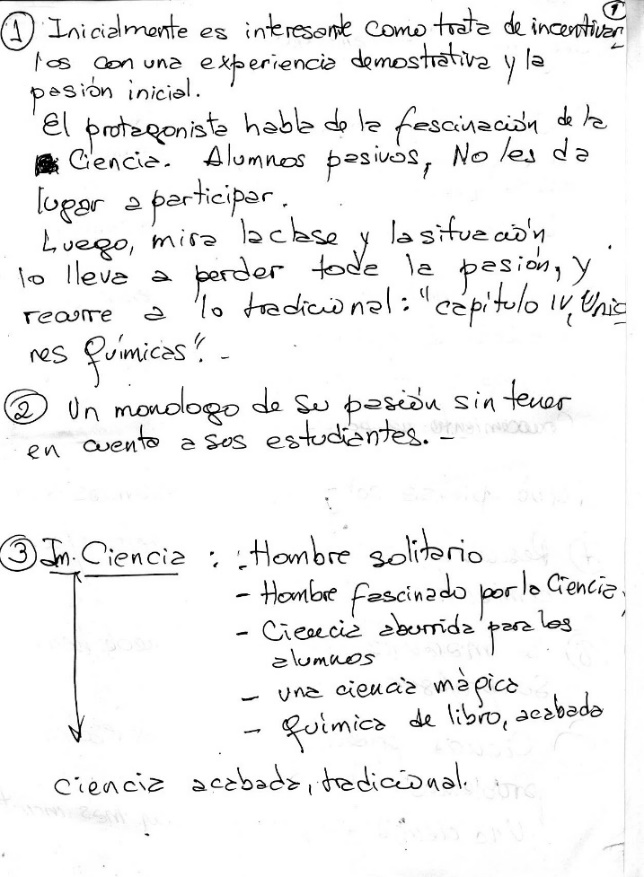 ①
① Inicialmente es interesante como trata de incentivar
los con una experiencia demostrativa y la
pasión inicial.
El protagonista habla de la fascinación de la
Ciencia. Alumnos pasivos, No les da
lugar a participar.
Luego, mira la clase y la situación
lo lleva a perder toda la pasión, y
recurre a lo tradicional: "capítulo IV, Unio
nes Químicas". -
② Un monologo de su pasión sin tener
en cuenta a sus estudiantes. -
③ Im. Ciencia : - Hombre solitario
- Hombre fascinado por la Ciencia,
- Ciencia aburrida para los
alumnos
- una ciencia mágica
- Química de libro, acabada
ciencia acabada, tradicional.